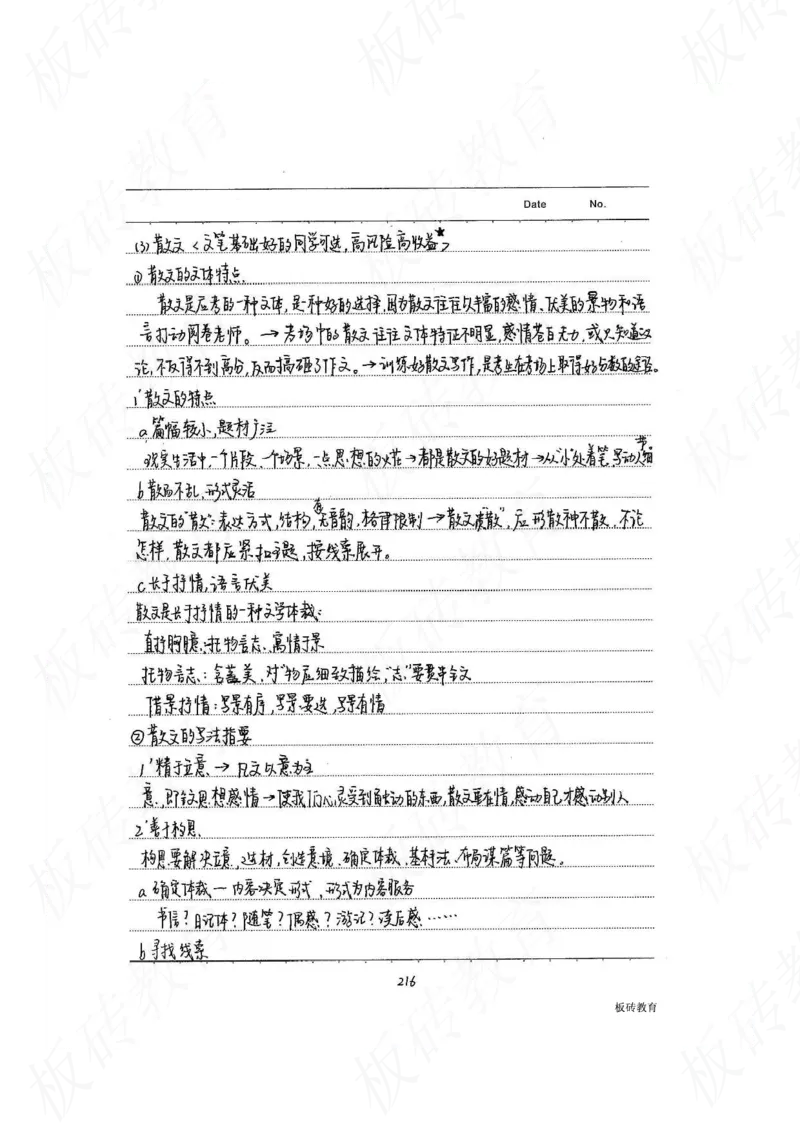 Date No.
(3) 散文 <文笔基础出好的同学可选,高风险高收益>★
① 散文的文体特点
散文是应考的一种文体,是一种好的选择,因为散文往往以丰富的感情、优美的景物和语
言打动阅卷老师。→考场中的散文往往文体特征不明显,感情苍白无力,或只知道议
论,不仅得不到高分,反而搞砸了作文。→训练好散文写作,是考生在考场上取得好分数的
1' 散文的特点
a 篇幅较小,题材广泛
现实生活中,一个片段、一个场景、一点思想的火花→都是散文的好题材→从“小”处着笔,写动人细节
b 散而不乱,形式灵活
散文的“散”:表达方式,结构,无音韵,格律限制→散文虽“散”,应形散神不散,不论
怎样,散文都应紧扣主题,按线索展开。
c 长于抒情,语言优美
散文是长于抒情的一种文学体裁:
直抒胸臆、托物言志、寓情于景
托物言志:含蓄美,对“物”应细致描绘,“志”要贯串全文
借景抒情:写景有序,写景要选,写景有情
② 散文的写法指要
1' 精于立意 → 凡文以意为主
意,即主思想感情→使我们心灵受到触动的东西,散文重在情,感动自己才感动别人
2' 善于构思
构思要解决立意,选材,创造意境、确定体裁、基本手法、布局谋篇等问题。
a 确定体裁—内容决定形式,形式为内容服务
书信?日记体?随笔?偶感?游记?读后感……
b 寻找线索
216
板砖教育